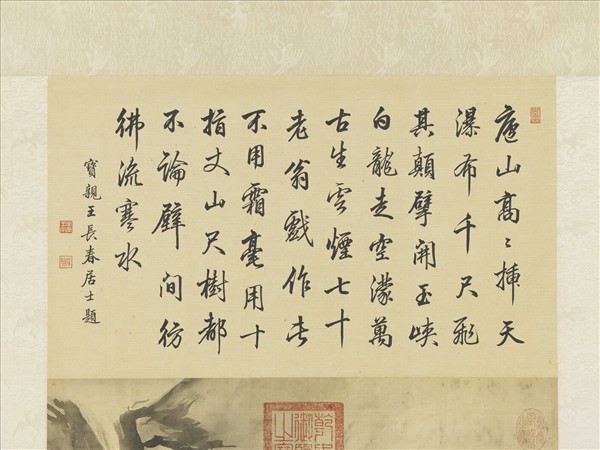 廬山高〻揷天
瀑布千尺飛
其顛擘開玉峽
白龍走空濛萬
古生雲煙七十
老翁戲作此
不用霜毫用十
指丈山尺樹都
不論壁間彷
彿流寒水
寶親王長春居士題